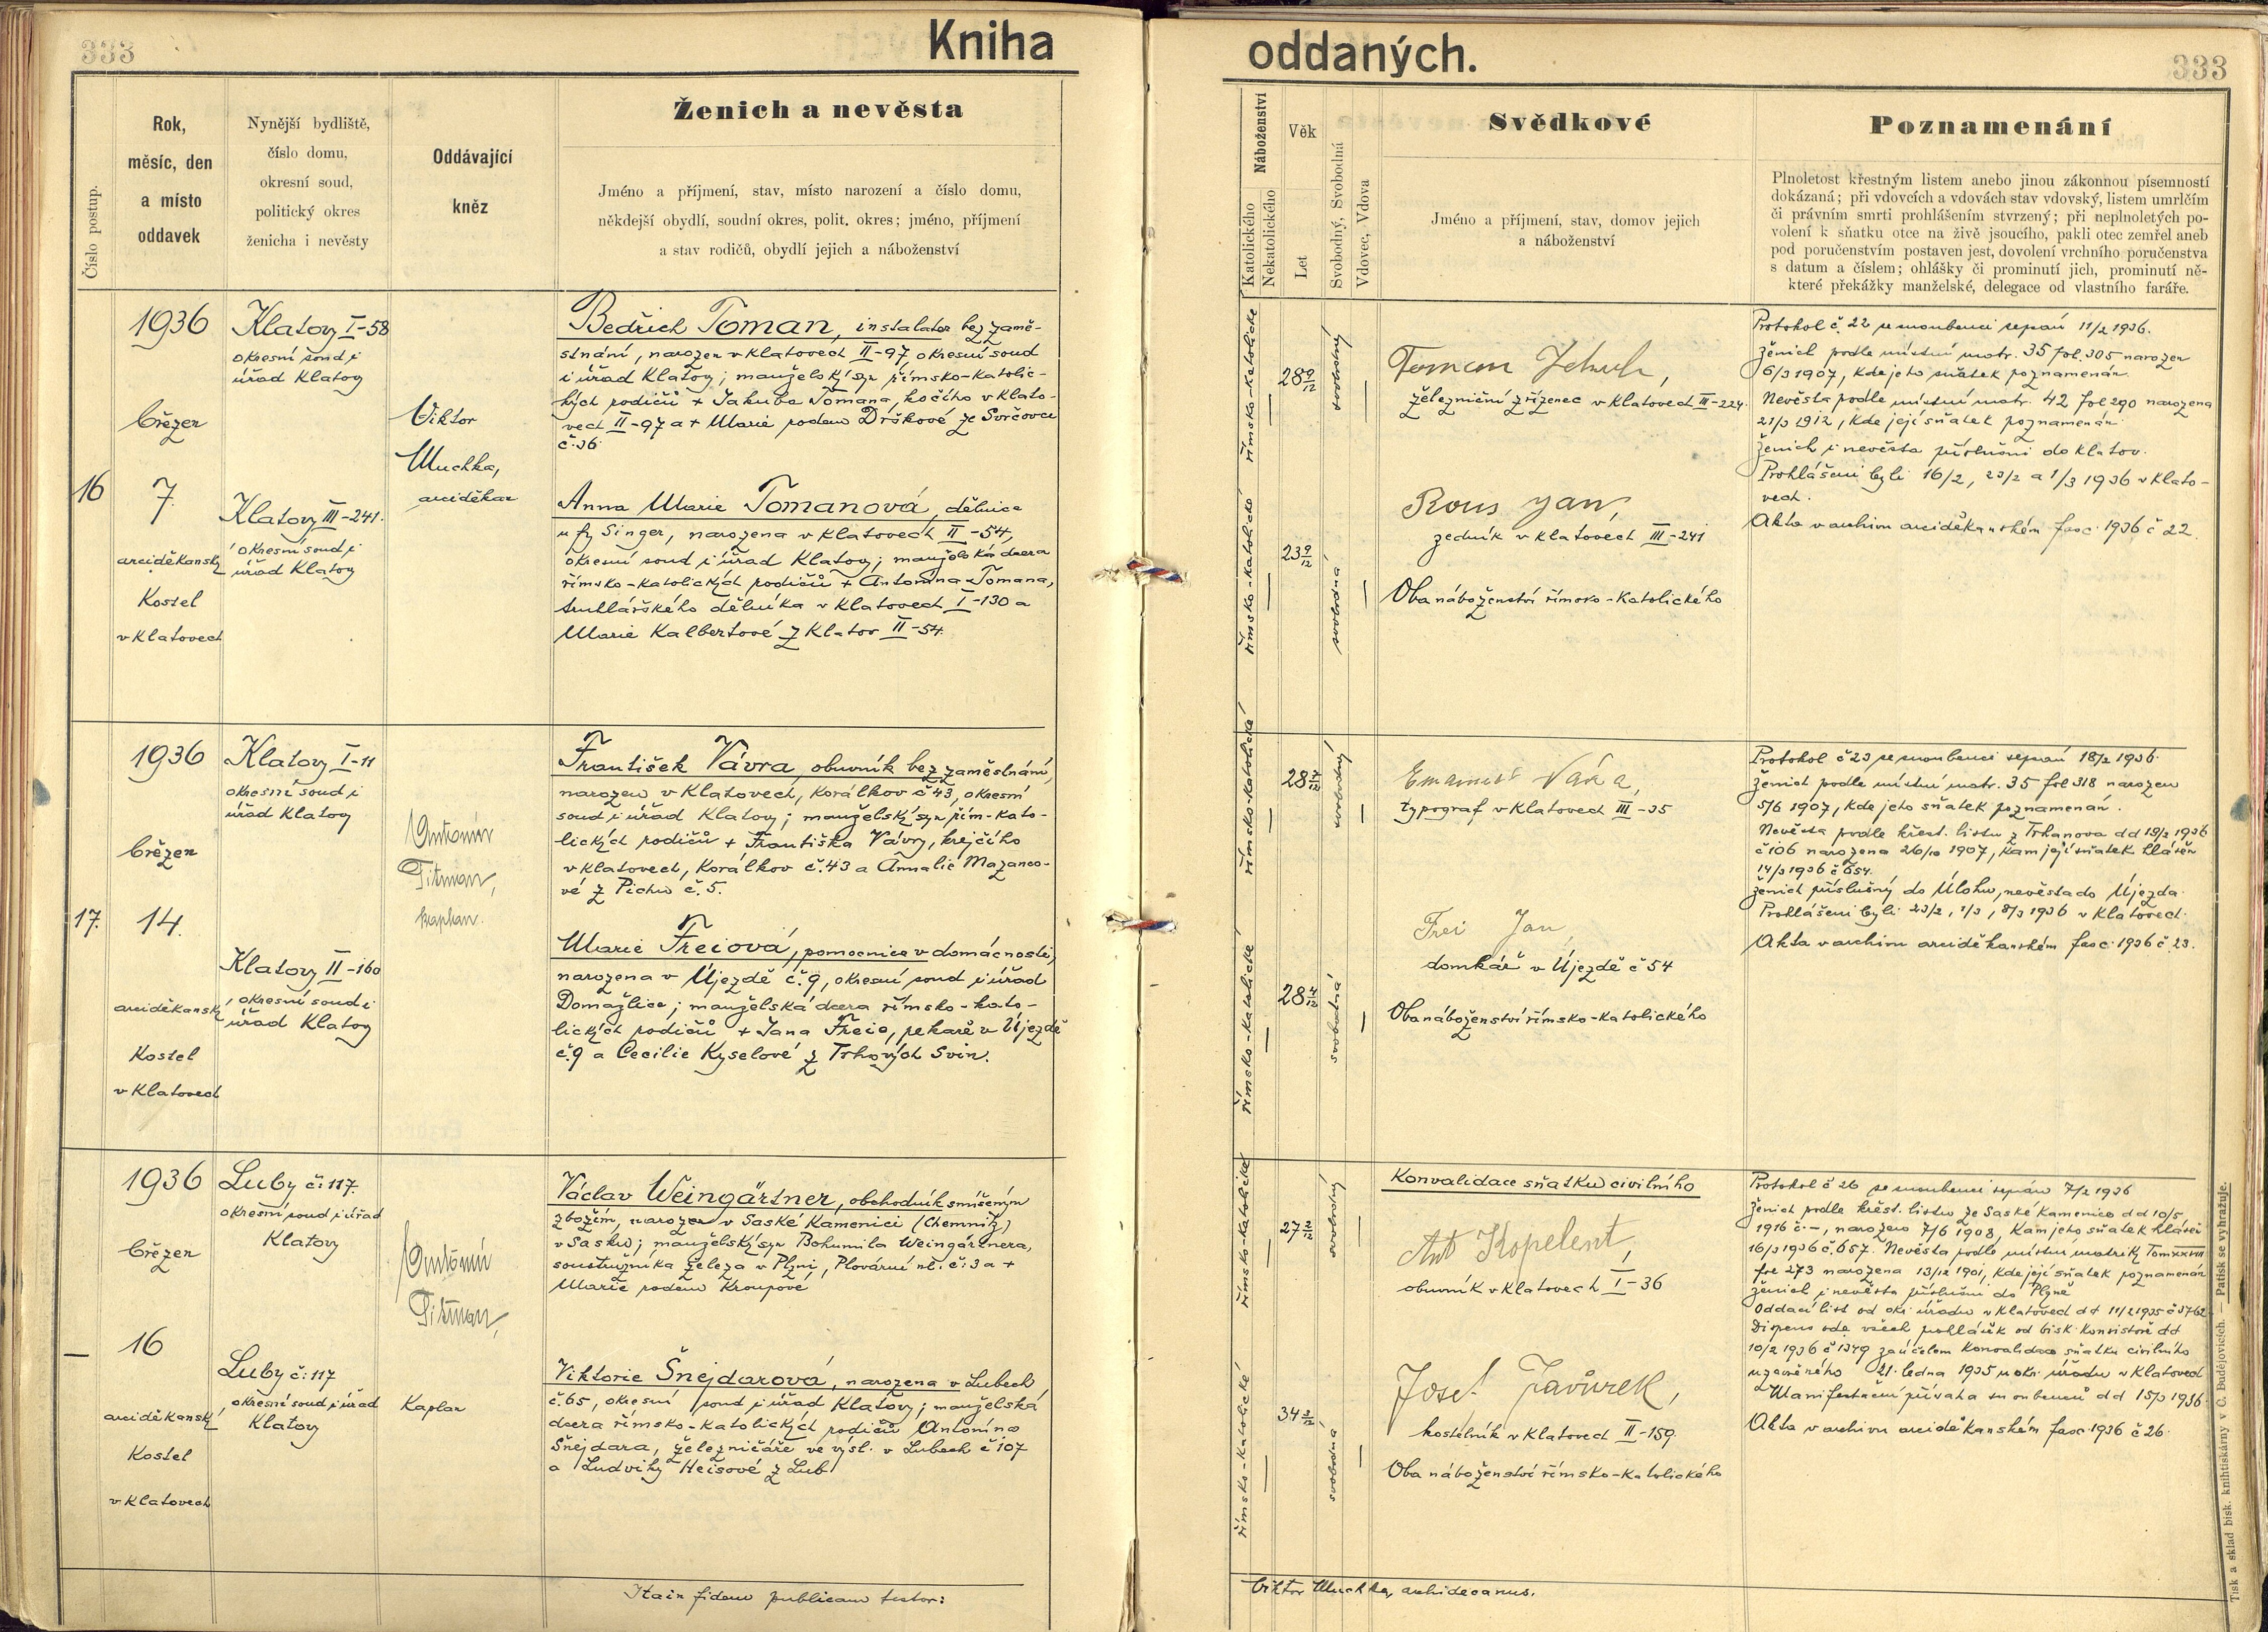 333
Kniha
oddaných.
333
Číslo postup.
Rok,
měsíc, den
a místo
oddavek
Nynější bydliště,
číslo domu,
okresní soud,
politický okres
ženicha i nevěsty
Oddávající
kněz
Ženich a nevěsta
Jméno a příjmení, stav, místo narození a číslo domu,
někdejší obydlí, soudní okres, polit. okres; jméno, příjmení
a stav rodičů, obydlí jejich a náboženství
Náboženství
Katolického
Nekatolického
Věk
Let
Svobodný, Svobodná
Vdovec, Vdova
Svědkové
Jméno a příjmení, stav, domov jejich
a náboženství
Poznamenání
Plnoletost křestným listem anebo jinou zákonnou písemností
dokázaná; při vdovcích a vdovách stav vdovský, listem umrlčím
či právním smrti prohlášením stvrzený; při neplnoletých po-
volení k sňatku otce na živě jsoucího, pakli otec zemřel aneb
pod poručenstvím postaven jest, dovolení vrchního poručenstva
s datum a číslem; ohlášky či prominutí jich, prominutí ně-
které překážky manželské, delegace od vlastního faráře.
16
1936
březen
7.
arciděkanský
Kostel
v Klatovech
Klatovy I-58
okresní soud i
úřad Klatovy
Klatovy III-241.
okresní soud i
úřad Klatovy
Viktor
Muchka,
arciděkan
Bedřich Toman, instalator bez zamě-
stnání, narozen v Klatovech II-97 okresní soud
i úřad Klatovy; manželský syn římsko-katolic-
kých rodičů + Jakuba Tomana, kočího v Klato-
vech II-97 a + Marie rodem Drškové ze Svrčovce
č. 36.
Anna Marie Tomanová, dělnice
u fy Singer, narozena v Klatovech II-54,
okresní soud i úřad Klatovy; manželská dcera
římsko-katolických rodičů + Antonína Tomana,
truhlářského dělníka v Klatovech I-130 a
Marie Kalbertové z Klatov II-54.
římsko-katolické
28 9/12
svobodný
římsko-katolické
23 9/12
svobodná
Toman Jakub,
železniční zřízenec v Klatovech III-224.
Rous Jan,
zedník v Klatovech III-241
Oba náboženství římsko-katolického
Protokol č. 22 se snoubenci sepsán 11/2 1936.
Ženich podle místní matr. 35 fol. 305 narozen
6/3 1907, kde jeho sňatek poznamenán.
Nevěsta podle místní matr. 42 fol 290 narozena
21/3 1912, kde její sňatek poznamenán.
Ženich i nevěsta příslušní do Klatov.
Prohlášeni byli 16/2, 23/2 a 1/3 1936 v Klato-
vech.
Akta v archivu arciděkanském fasc. 1936 č 22.
17.
1936
březen
14.
arciděkanský
Kostel
v Klatovech
Klatovy I-11
okresní soud i
úřad Klatovy
Klatovy II-160
okresní soud i
úřad Klatovy
Antonín
Pitman,
kaplan.
František Vávra, obuvník bez zaměstnání,
narozen v Klatovech, Korálkov č 43, okresní
soud i úřad Klatovy; manželský syn řím-kato-
lických rodičů + Františka Vávry, krejčího
v Klatovech, Korálkov č. 43 a Amalie Mazanco-
vé z Píchu č. 5.
Marie Freiová, pomocnice v domácnosti,
narozena v Újezdě č. 9, okresní soud i úřad
Domažlice; manželská dcera římsko-kato-
lických rodičů + Jana Freie, pekaře v Újezdě
č. 9 a Cecilie Kyselové z Trhových Svin.
římsko-katolické
28
svobodný
římsko-katolické
28 4/12
svobodná
typograf v Klatovech III-35
Frei Jan,
domkář v Újezdě č 54
Oba náboženství římsko-katolického
Protokol č 23 se snoubenci sepsán 18/2 1936.
Ženich podle místní matr. 35 fol 318 narozen
5/6 1907, kde jeho sňatek poznamenán.
Nevěsta podle křest. listu z Trhanova dd 19/2 1936
č 106 narozena 26/10 1907, kam její sňatek hlášen
14/3 1936 č 654.
Ženich příslušný do Úlohu, nevěsta do Újezda.
Prohlášeni byli 23/2, 1/3, 8/3 1936 v Klatovech.
Akta v archivu arciděkanském fasc. 1936 č. 23.
—
1936
březen
16
arciděkanský
Kostel
v Klatovech
Luby č. 117.
okresní soud i úřad
Klatovy
Luby č. 117
okresní soud i úřad
Klatovy
Antonín
Pitman,
Kaplan
Václav Weingärtner, obchodník smíšeným
zbožím, narozen v Saské Kamenici (Chemnitz)
v Sasku; manželský syn Bohumila Weingärtnera,
soustružníka železa v Plzni, Plovární ul. č. 3 a +
Marie rodem Kroupové
Viktorie Šnejdarová, narozena v Lubech
č. 65, okresní soud i úřad Klatovy; manželská
dcera římsko-katolických rodičů Antonína
Šnejdara, železničáře ve výsl. v Lubech č 107
a Ludviky Heisové z Lub
římsko-katolické
27 9/12
svobodný
římsko-katolické
34 3/12
svobodná
Konvalidace sňatku civilního
Ant Kopelent,
obuvník v Klatovech I-36
Josef Javůrek,
kostelník v Klatovech II-159.
Oba náboženství římsko-katolického
Protokol č 26 se snoubenci sepsán 7/2 1936
Ženich podle křest. listu ze Saské Kamenice dd 10/5
1916 č. -, narozen 7/6 1908, kam jeho sňatek hlášen
16/3 1936 č. 657. Nevěsta podle místní matriky Tom XXVIII
fol 273 narozena 13/12 1901, kde její sňatek poznamenán
Ženich i nevěsta příslušní do Plzně
Oddací list od okr. úřadu v Klatovech dd 11/2 1935 č 3762.
Dispens ode všech prohlášek od bisk. konsistoře dd
10/2 1936 č 1349 za účelem konvalidace sňatku civilního
uzavřeného 21. ledna 1935 u okr. úřadu v Klatovech
Manifestační přísaha snoubenců dd 15/3 1936.
Akta v archivu arciděkanském fasc 1936 č 26.
Ita in fidem publicam testor:
Viktor Muchka, archidecanus.
Tisk a sklad bisk. knihtiskárny v Č. Budějovicích. — Patisk se vyhražuje.